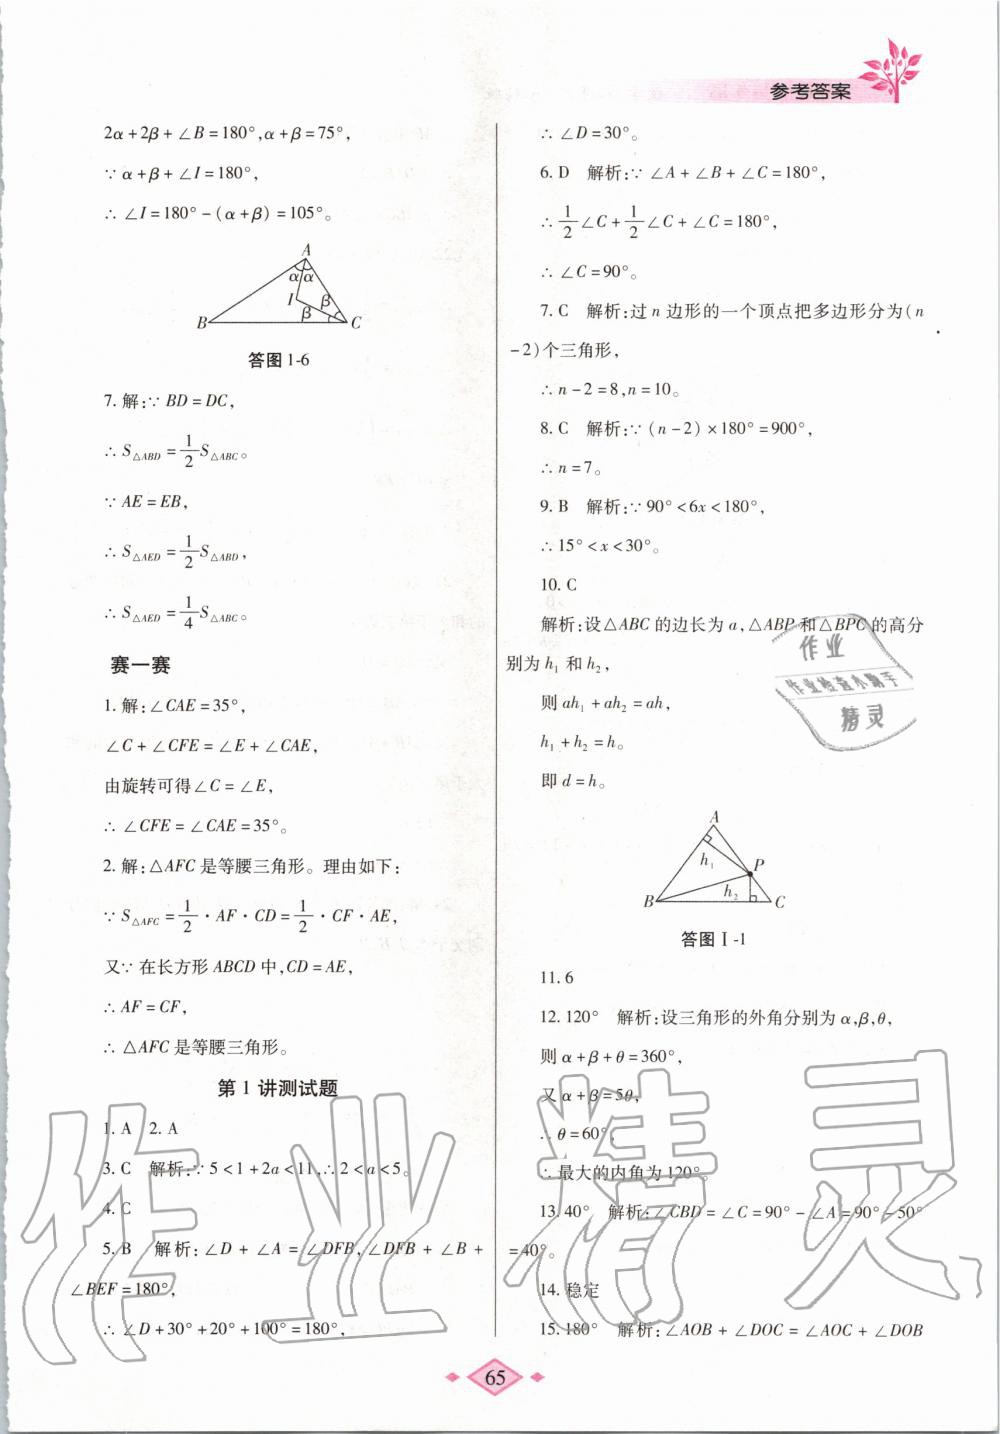 参考答案
2α+2β+∠B=180°,α+β=75°,
∵α+β+∠I=180°,
∴∠I=180°-(α+β)=105°。
A
α α
I β
B β C
答图1-6
7.解:∵BD=DC,
∴S△ABD=1/2S△ABC。
∵AE=EB,
∴S△AED=1/2S△ABD,
∴S△AED=1/4S△ABC。
赛一赛
1.解:∠CAE=35°,
∠C+∠CFE=∠E+∠CAE,
由旋转可得∠C=∠E,
∴∠CFE=∠CAE=35°。
2.解:△AFC是等腰三角形。理由如下:
∵S△AFC=1/2·AF·CD=1/2·CF·AE,
又∵在长方形ABCD中,CD=AE,
∴AF=CF,
∴△AFC是等腰三角形。
第1讲测试题
1.A 2.A
3.C 解析:∵5<1+2a<11,∴2<a<5。
4.C
5.B 解析:∠D+∠A=∠DFB,∠DFB+∠B+
∠BEF=180°,
∴∠D+30°+20°+100°=180°,
∴∠D=30°。
6.D 解析:∵∠A+∠B+∠C=180°,
∴1/2∠C+1/2∠C+∠C=180°,
∴∠C=90°。
7.C 解析:过n边形的一个顶点把多边形分为(n
-2)个三角形,
∴n-2=8,n=10。
8.C 解析:∵(n-2)×180°=900°,
∴n=7。
9.B 解析:∵90°<6x<180°,
∴15°<x<30°。
10.C
解析:设△ABC的边长为a,△ABP和△BPC的高分
别为h₁和h₂,
则ah₁+ah₂=ah,
h₁+h₂=h。
即d=h。
A
h₁ P
B h₂ C
答图Ⅰ-1
11.6
12.120° 解析:设三角形的外角分别为α,β,θ,
则α+β+θ=360°,
又α+β=5θ,
∴θ=60°,
∴最大的内角为120°。
13.40° 解析:∠CBD=∠C=90°-∠A=90°-50°
=40°。
14.稳定
15.180° 解析:∠AOB+∠DOC=∠AOC+∠DOB
65
作业
作业检查小助手
精灵
作业精灵